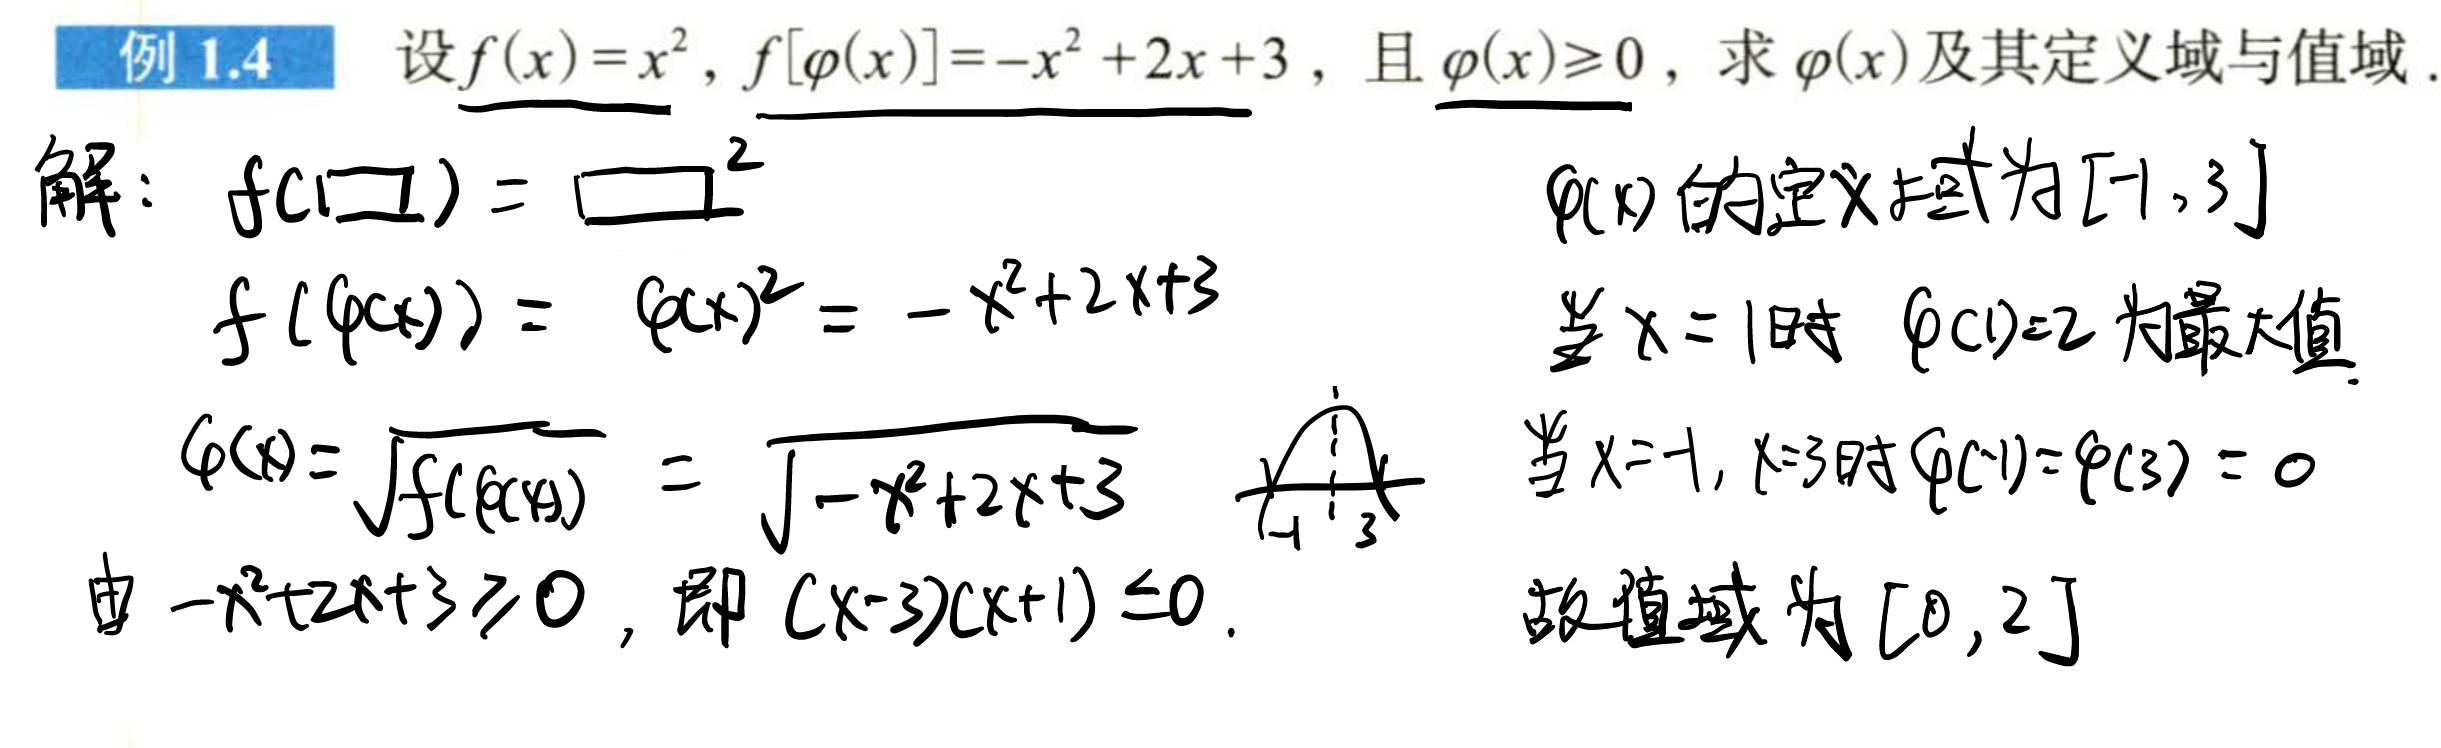 例 1.4 设f(x)=x², f[φ(x)]=-x²+2x+3, 且 φ(x)≥0, 求 φ(x)及其定义域与值域.
解: f(□) = □²
f(φ(x)) = φ(x)² = -x²+2x+3
φ(x) = √f(φ(x)) = √-x²+2x+3
-1 3
由 -x²+2x+3 ≥ 0, 即 (x-3)(x+1) ≤ 0.
φ(x) 的定义域为 [-1, 3]
当 x = 1时 φ(1)=2 为最大值.
当 x=-1, x=3时 φ(-1)=φ(3) = 0
故值域为 [0, 2]